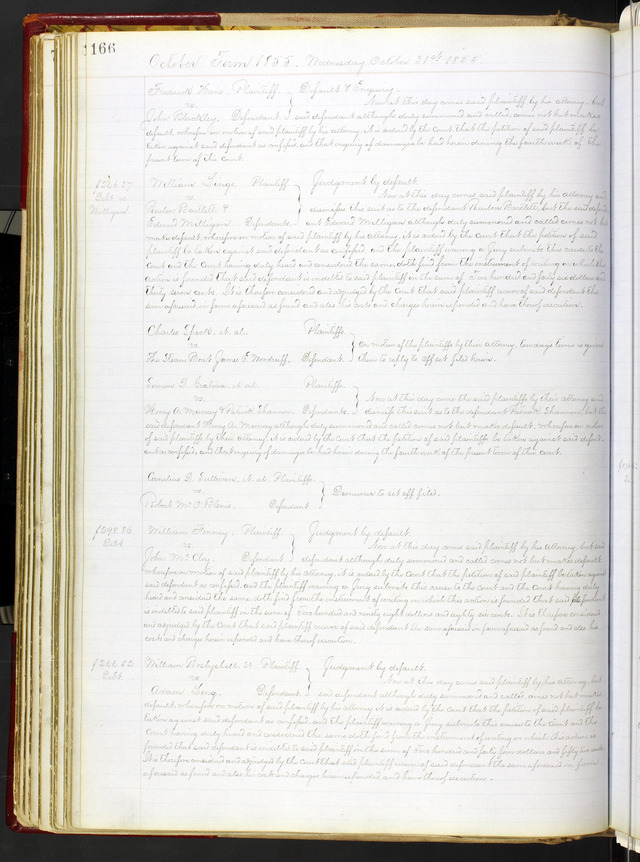 166
October Term 1855. Wednesday October 31st 1855.
Frederick Hase, Plaintiff Default & Enquiry.
vs. Now at this day comes said plaintiff by his attorney, but
John Blickley. Defendant. said defendant although duly summoned and called, comes not but makes
default, wherefore on motion of said plaintiff by his attorney, it is ordered by the Court that the petition of said plaintiff be
taken against said defendant as confessed, and that enquiry of damages be had herein during the fourth week of the
present term of this Court.
William Linge Plaintiff Judgment by default.
Debt vs. Now at this day comes said plaintiff by his attorney and
Milligan Reuben Bartlett & dismisses this suit as to the defendant Reuben Bartlett, but the said defend-
Edward Milligan Defendants. ant Edward Milligan although duly summoned and called comes not but
makes default, wherefore on motion of said plaintiff by his attorney, it is ordered by the Court that the petition of said
plaintiff be taken against said defendant as confessed, and the plaintiff waiving a Jury submits this cause to the
Court and the Court having duly heard and considered the same doth find from the instrument of writing on which this
action is founded that said defendant is indebted to said plaintiff in the sum of Two hundred and forty six dollars and
thirty seven cents. It is therefore considered and adjudged by the Court that said plaintiff recover of said defendant the
sum aforesaid, in form aforesaid as found and also his costs and charges herein expended and have thereof execution.
Charles Speck, et. al. Plaintiffs.
vs. On motion of the plaintiffs by their attorney, ten days time is given
The Steam Boat James E. Woodruff. Defendant. them to reply to off set filed herein.
et. al. Plaintiffs.
vs. Now at this day come the said plaintiffs by their attorney and
Henry A. Murray & Patrick Shannon. Defendants. dismiss this suit as to the defendant Patrick Shannon, but the
said defendant Henry A. Murray although duly summoned and called comes not but makes default. Wherefore on motion
of said plaintiffs by their attorney, it is ordered by the Court that the petition of said plaintiffs be taken against said defend-
ant as confessed, and that enquiry of damages be had herein during the fourth week of the present term of this court.
Cornelius D. Sullivan, et. al. Plaintiffs.
vs. Demurrer to set off filed.
Robert Mc O'Blenis. Defendant
$298.86 William Finney. Plaintiff. Judgment by default.
Debt vs. Now at this day comes said plaintiff by his Attorney, but said
John McCloy. Defendant. defendant although duly summoned and called comes not but makes default
wherefore on motion of said plaintiff by his attorney, it is ordered by the Court that the petition of said plaintiff be taken against
said defendant as confessed, and the plaintiff waiving a Jury submits this cause to the Court and the Court having duly
heard and considered the same doth find from the instrument of writing on which this action is founded that said defendant
is indebted to said plaintiff in the sum of Two hundred and ninety eight dollars and eighty six cents. It is therefore considered
and adjudged by the Court that said plaintiff recover of said defendant the sum aforesaid in form aforesaid as found and also his
costs and charges herein expended and have thereof execution.
William Plaintiff. Judgment by default.
Debt. vs. Now at this day comes said plaintiff by his Attorney, but
Adam Defendant. said defendant although duly summoned and called, comes not but makes
default, wherefore on motion of said plaintiff by his attorney it is ordered by the Court that the petition of said plaintiff be
taken against said defendant as confessed, and the plaintiff waiving a Jury submits this cause to the Court and the
Court having duly heard and considered the same doth find from the instrument of writing on which this action is
founded that said defendant is indebted to said plaintiff in the sum of Two hundred and forty four dollars and fifty two cents.
It is therefore considered and adjudged by the Court that said plaintiff recover of said defendant the sum aforesaid in form
aforesaid as found and also his costs and charges herein expended and have thereof execution.